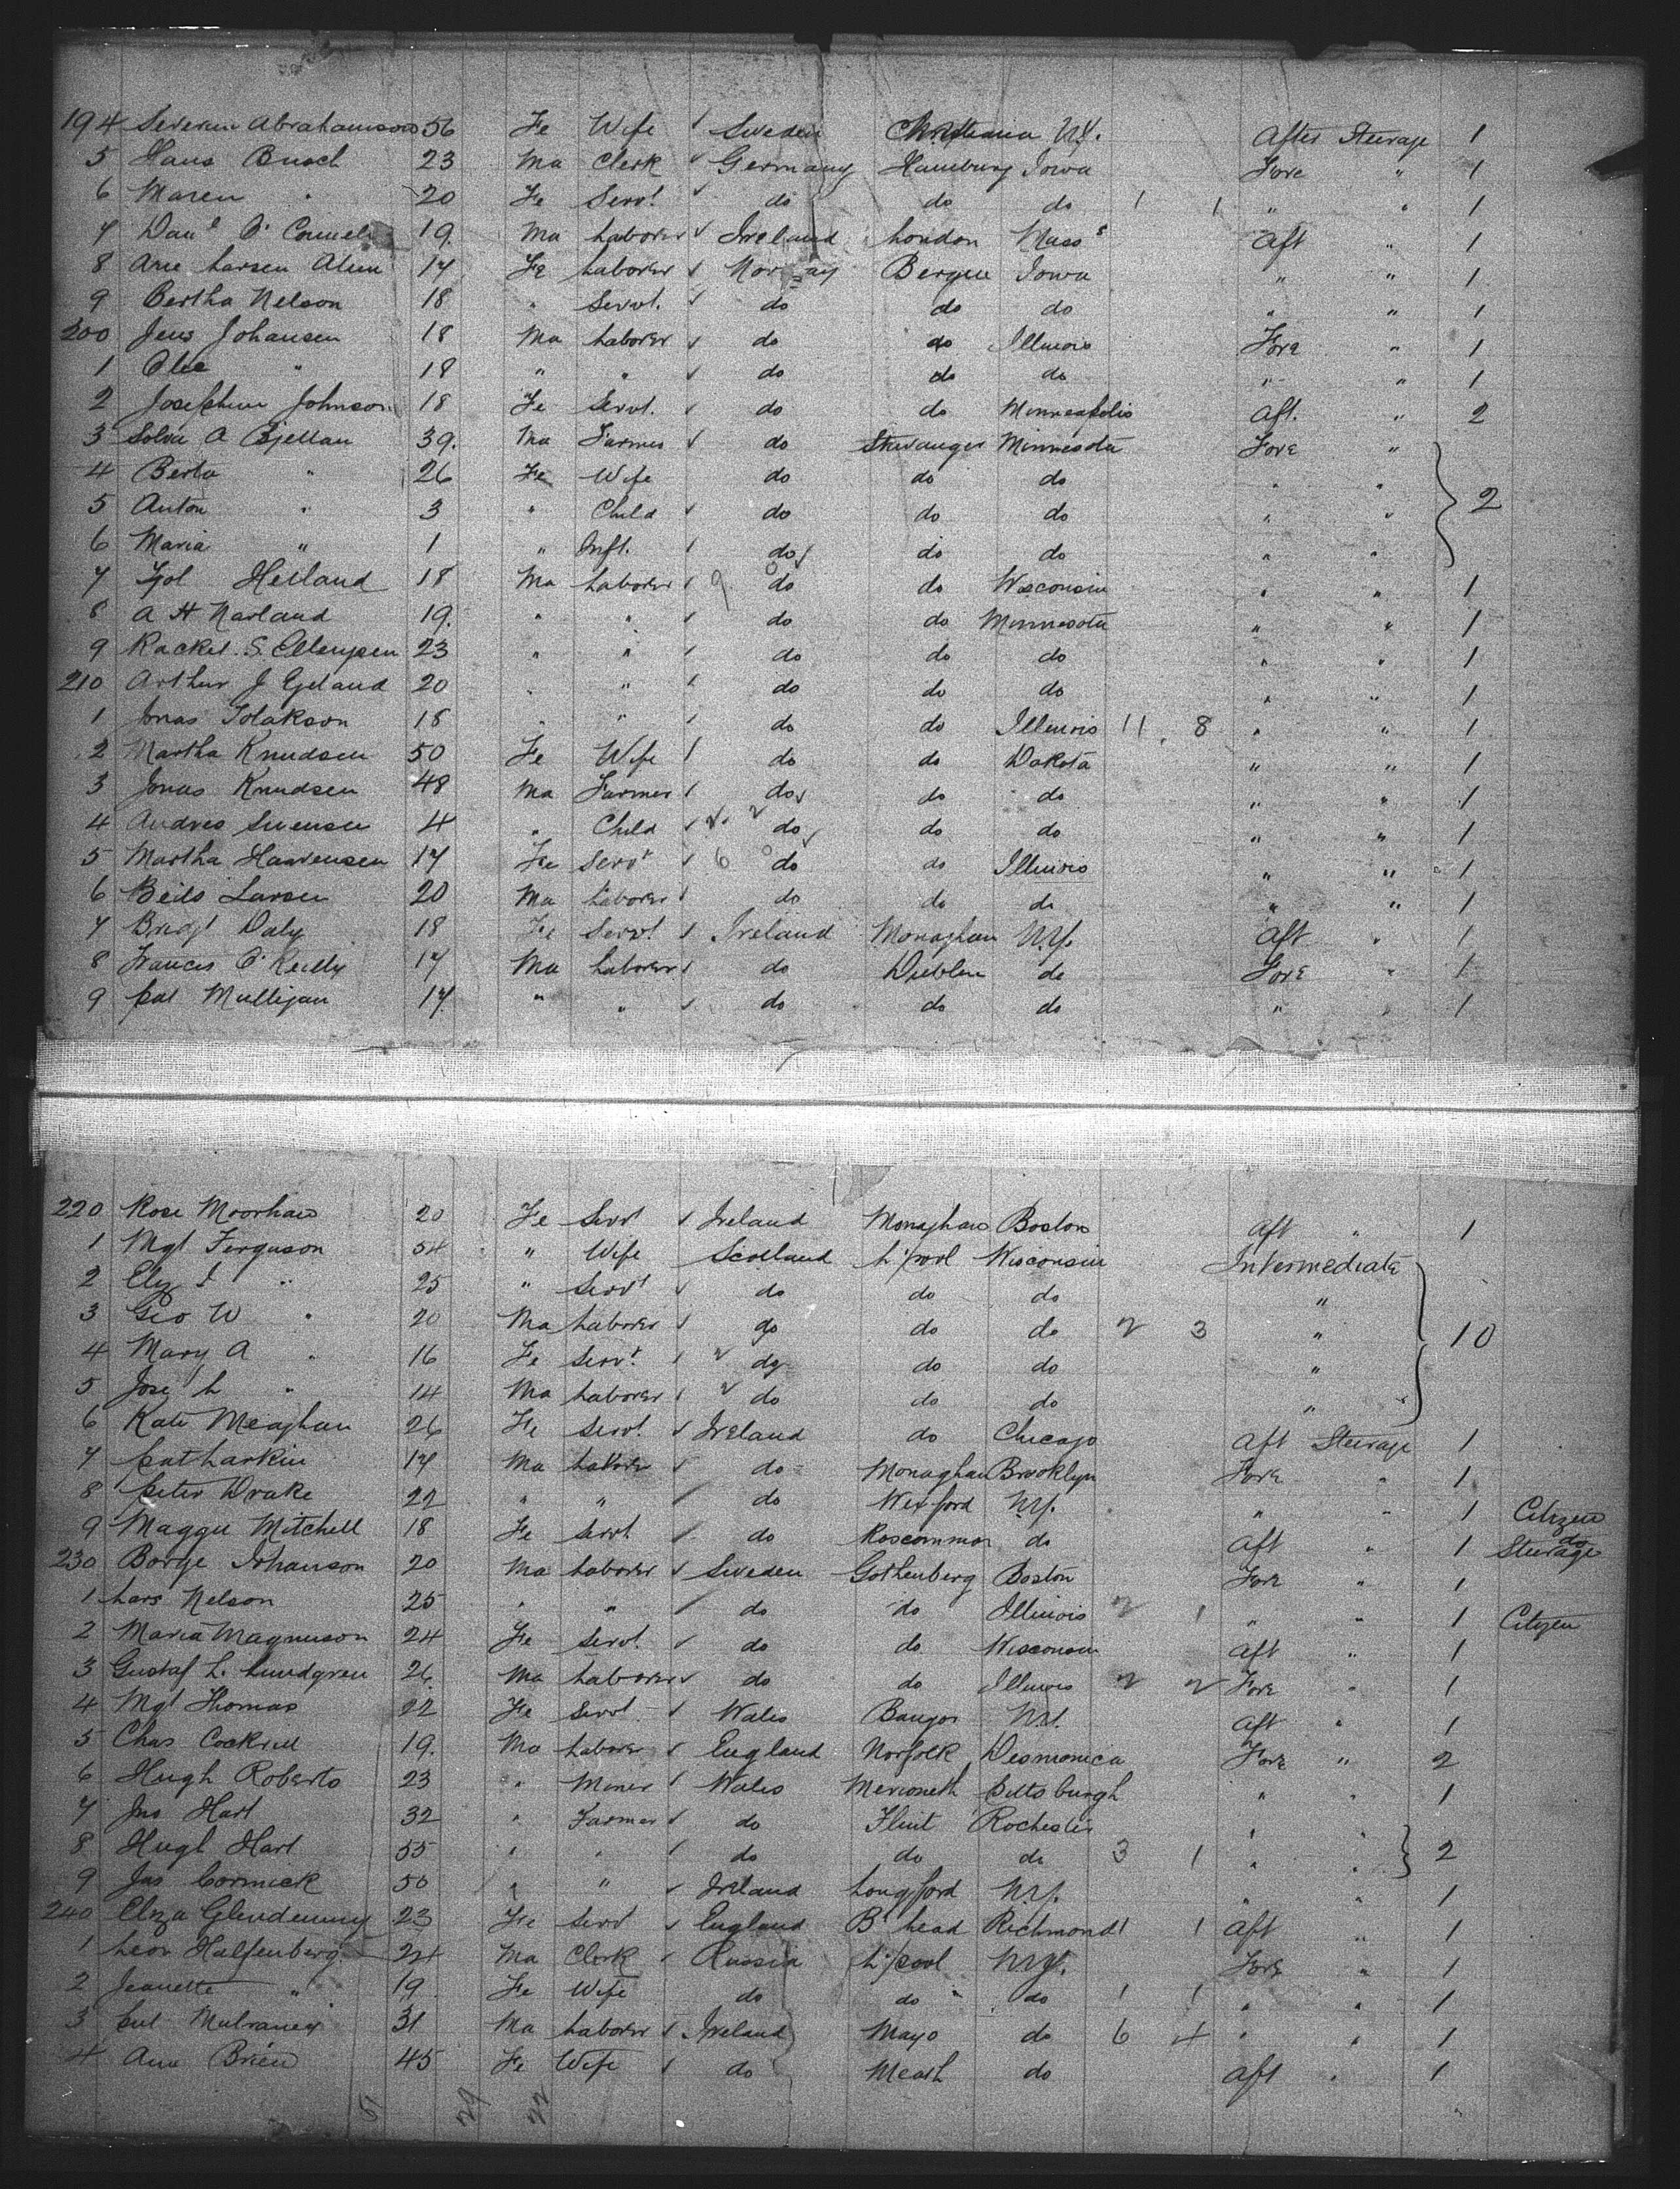 194 Severin Abrahamson 56 Fe Wife Sweden Christiania N.Y. After Steerage 1
5 Hans Busch 23 Ma Clerk Germany Hamburg Iowa Fore " 1
6 Maren " 20 Fe Servt do do do 1 1 " " 1
7 Danl O'Connell 19 Ma Laborer Ireland London Mass Aft " 1
8 Arne Larsen 17 Fe Laborer Norway Bergen Iowa " " 1
9 Bertha Nelson 18 " Servt. do do do " " 1
200 Jens Johansen 18 Ma Laborer do do Illinois Fore " 1
1 Ole " 18 " " do do do " " 1
2 Josephine Johnson 18 Fe Servt. do do Minneapolis Aft. " 2
3 A 39. Ma Farmer do Stavanger Minnesota Fore "
4 Berta " 26 Fe Wife do do do " "
5 Anton " 3 " Child do do do " " 2
6 Maria " 1 " Inft. do do do " "
7 Helland 18 Ma Laborer 9 0 do do Wisconsin " " 1
8 A H Narland 19. " " do do Minnesota " " 1
9 Rackel. S. 23 " " do do do " " 1
210 Arthur J Egeland 20 " " do do do " " 1
1 Jonas 18 " " do do Illinois 11 8 " " 1
2 Martha Knudsen 50 Fe Wife do do Dakota " " 1
3 Jonas Knudsen 48 Ma Farmer do do do " " 1
4 Andres Swensen 4 " Child do do do " " 1
5 Martha Haavensen 17 Fe Servt 6 0 do do Illinois " " 1
6 Larsen 20 Ma Laborer do do do " " 1
7 Bridgt Daly 18 Fe Servt Ireland Monaghan N.Y. Aft " 1
8 Francis O'Reilly 17 Ma Laborer do Dublin do Fore " 1
9 Pat Mulligan 17 " " do do do " " 1
220 Rose Moorhaw 20 Fe Servt Ireland Monaghan Boston Aft " 1
1 Mgt Ferguson 54 " Wife Scotland L'pool Wisconsin Intermediate
2 Eliz " 25 " Servt do do do "
3 Geo W " 20 Ma Laborer do do do 2 3 " 10
4 Mary A " 16 Fe Servt. do do do "
5 Jos L " 14 Ma Laborer do do do "
6 Kate Meaghan 26 Fe Servt. Ireland do Chicago Aft Steerage 1
7 Pat Larkin 17 Ma Laborer do Monaghan Brooklyn Fore " 1
8 Peter Drake 22 " " do Wexford N.Y. " " 1 Citizen
9 Maggie Mitchell 18 Fe Servt do Roscommon do Aft " 1 do Steerage
230 Borge Johanson 20 Ma Laborer Sweden Gothenberg Boston Fore " 1
1 Lars Nelson 25 " " do do Illinois 2 1 " " 1 Citizen
2 Maria Magnuson 24 Fe Servt. do do Wisconsin Aft " 1
3 Gustaf L. Lundgren 26 Ma Laborer do do Illinois 2 2 Fore " 1
4 Mgt Thomas 22 Fe Servt Wales Bangor N.Y. Aft " 1
5 Chas Cockrill 19. Ma Laborer England Norfolk Desmonica Fore " 2
6 Hugh Roberts 23 " Miner Wales Merioneth Pittsburgh " " 1
7 Jno Hart 32 " Farmer do Flint Rochester " "
8 Hugh Hart 55 " " do do do 3 1 " " 2
9 Jas Cormick 50 " " Ireland Longford N.Y. " " 1
240 Eliza Glendenning 23 Fe Servt England B'head Richmond 1 1 Aft " 1
1 Leon Halfenberg 24 Ma Clerk Russia L'pool N.Y. Fore " 1
2 Jeanette " 19 Fe Wife do do do 1 1 " " 1
3 Pat Mulraney 31 Ma Laborer Ireland Mayo do 6 4 " " 1
4 Ann Brien 45 Fe Wife do Meath do Aft " 1
51 29 22